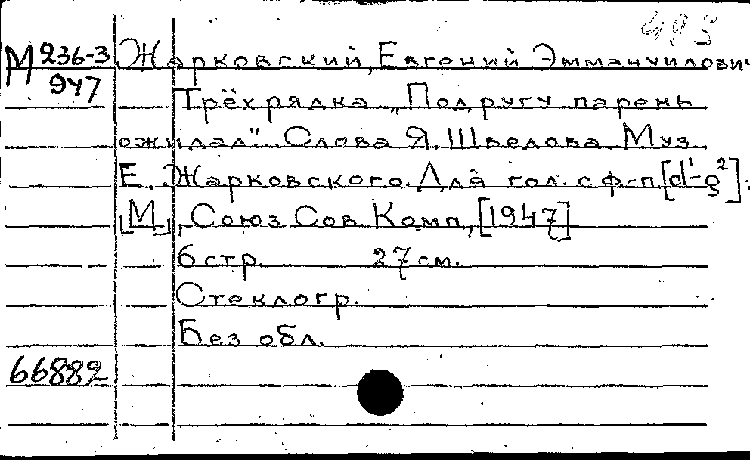 493
М 236-3 Жарковский, Евгений Эммануилович
947
Трёхрядка „Подругу парень
ожидал". Слова Я. Шведова. Муз.
Е. Жарковского. Для гол. с ф-п. [d¹-g²].
[М], Союз Сов. Комп., [1947]
6 стр. 27 см.
Стеклогр.
Без обл.
66882